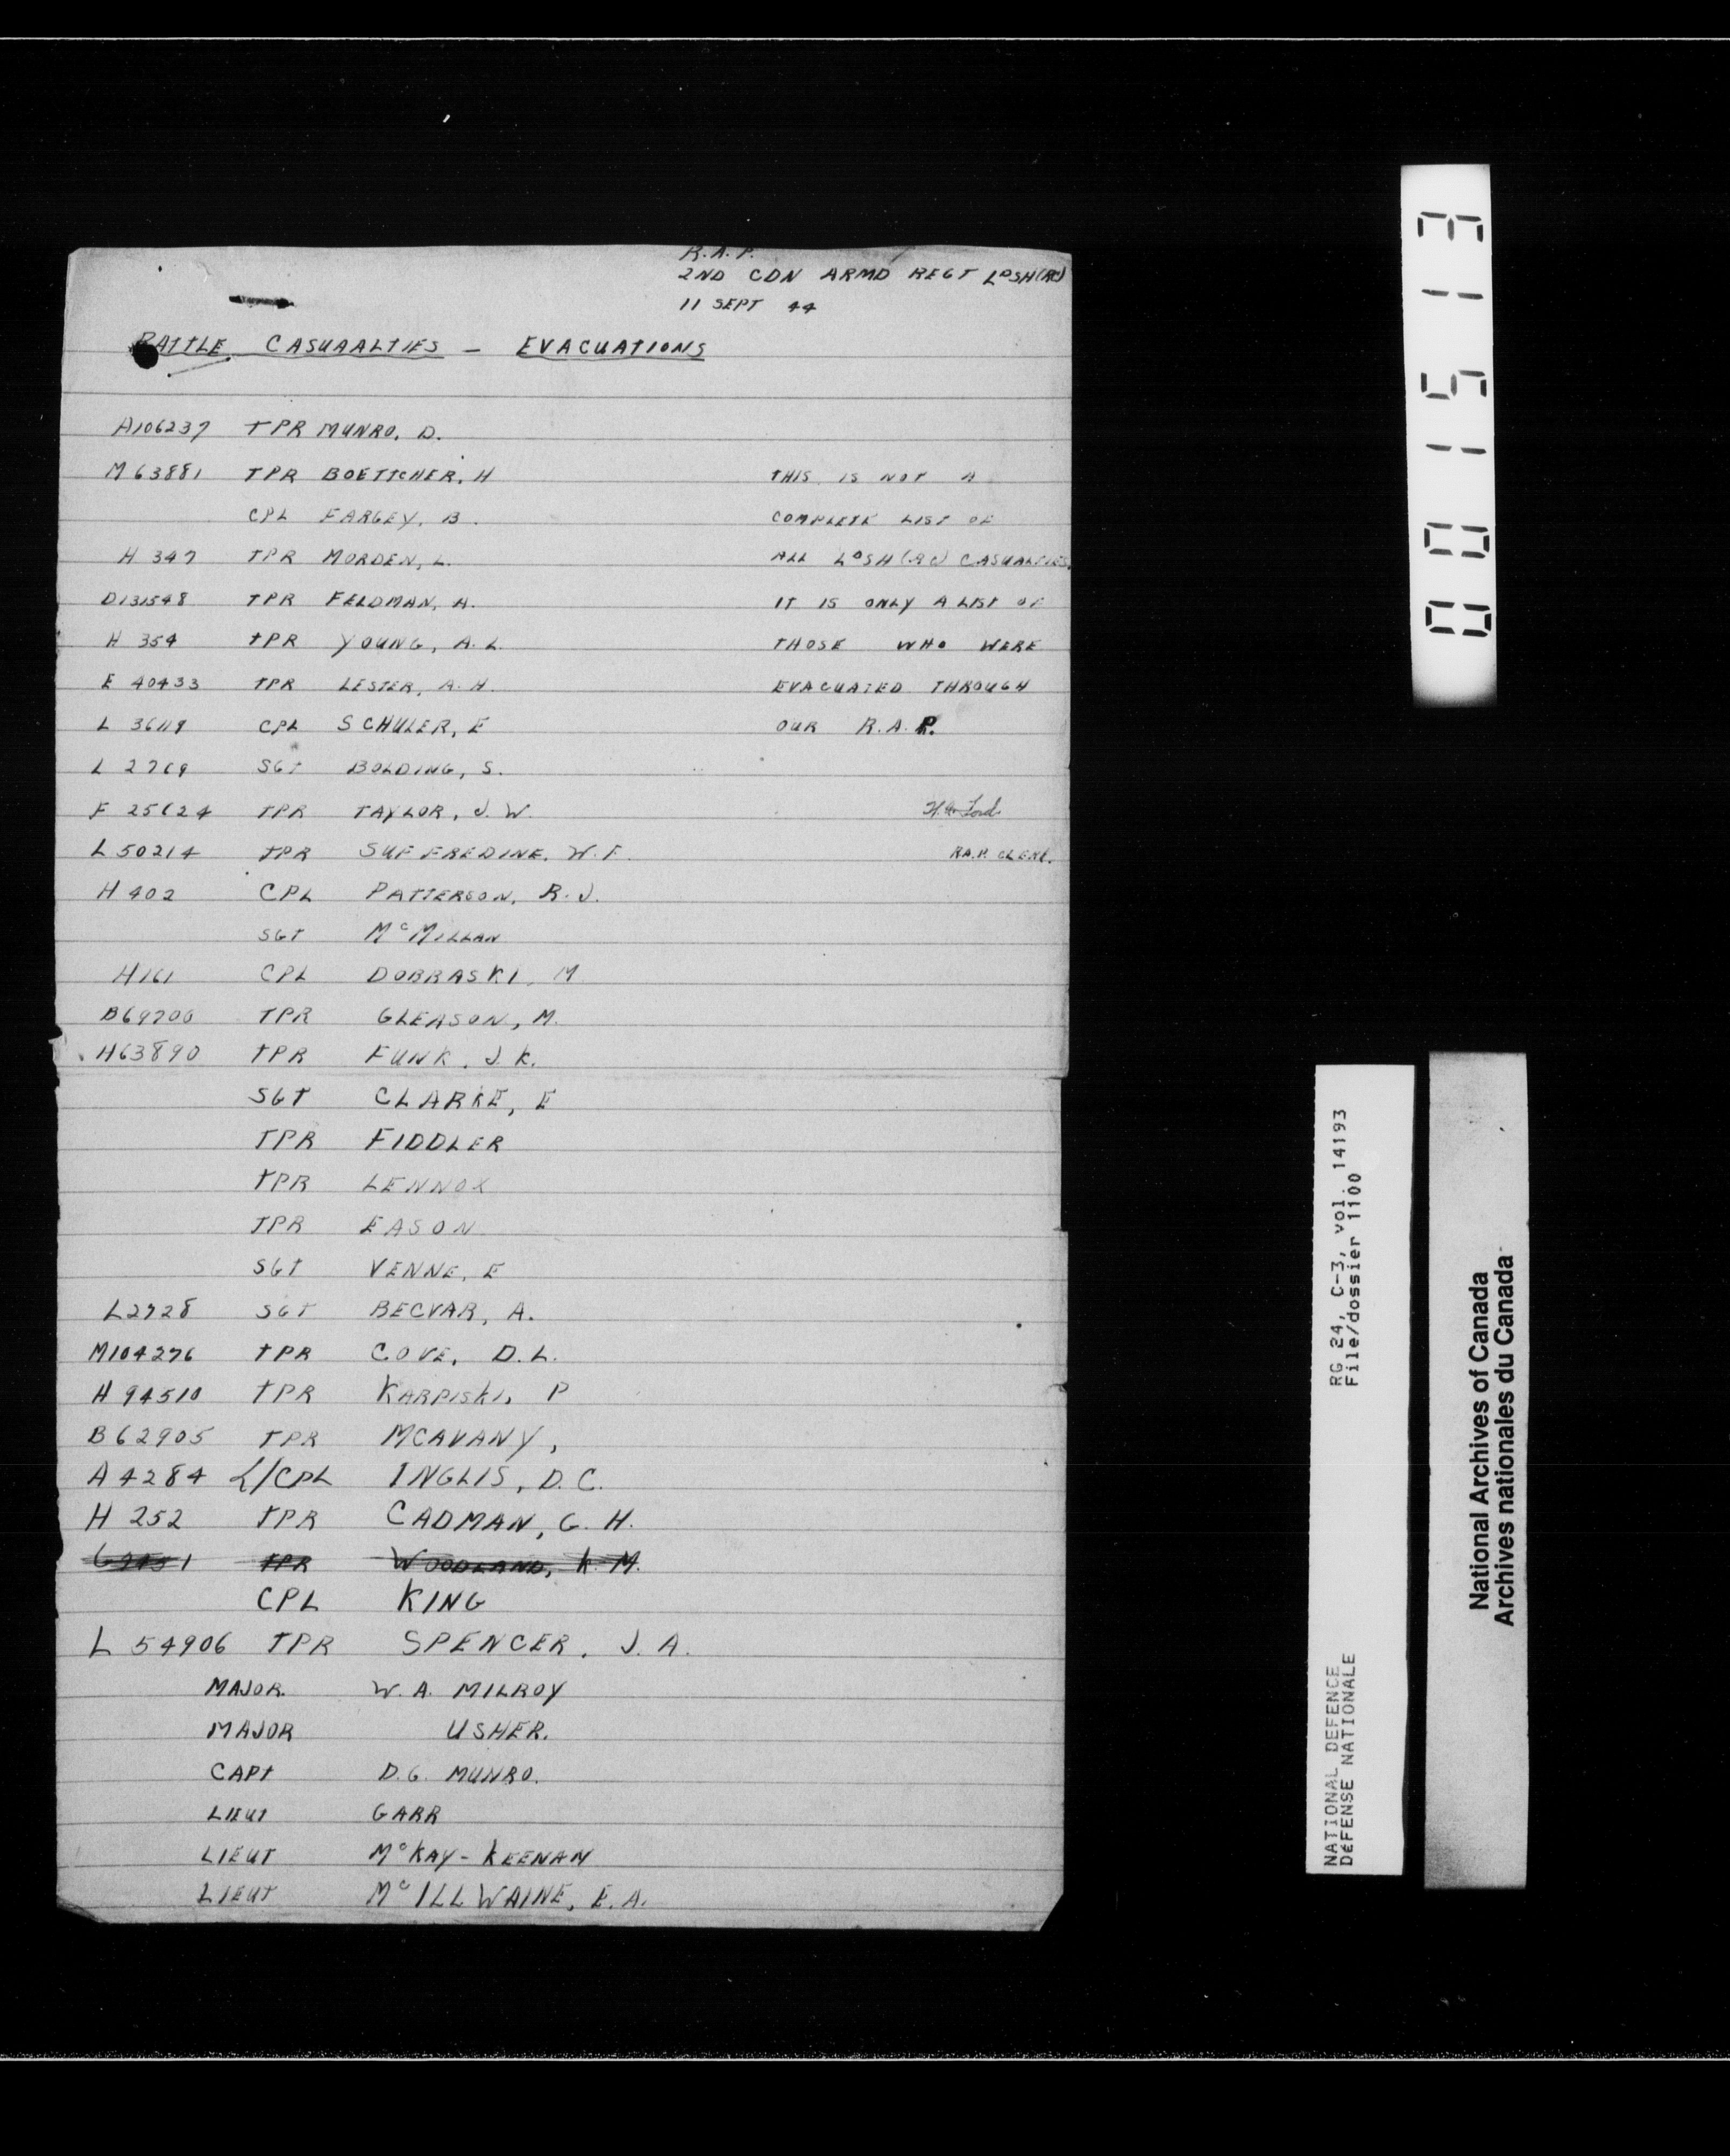 R.A.P.
2ND CDN ARMD REGT LDSH(RC)
11 SEPT 44
BATTLE CASUAALTIES - EVACUATIONS
A106237 TPR MUNRO, D.
M 63881 TPR BOETTCHER, H
CPL FARGEY, B.
H 347 TPR MORDEN, L.
D131548 TPR FELDMAN, A.
H 354 TPR YOUNG, A. L.
E 40433 TPR LESTER, A. H.
L 36119 CPL SCHULER, E
L 2769 SGT BOLDING, S.
F 25624 TPR TAYLOR, J. W.
L 50214 TPR SUFFREDINE, W. F.
H 402 CPL PATTERSON, R. J.
SGT McMILLAN
H161 CPL DOBRASKI, M
B69700 TPR GLEASON, M.
H63890 TPR FUNK, J. K.
SGT CLARKE, E
TPR FIDDLER
TPR LENNOX
TPR EASON
SGT VENNE, E
L2728 SGT BECVAR, A.
M104276 TPR COVE, D. L.
H 94510 TPR KARPISKI, P
B 62905 TPR MCAVANY,
A 4284 L/CPL INGLIS, D. C.
H 252 TPR CADMAN, G. H.
TPR WOODLAND, K. M.
CPL KING
L 54906 TPR SPENCER, J. A.
MAJOR. W. A. MILROY
MAJOR USHER.
CAPT D. G. MUNRO.
LIEUT GARR
LIEUT McKAY - KEENAN
LIEUT McILLWAINE, E. A.
THIS IS NOT A
COMPLETE LIST OF
ALL LDSH (RC) CASUALTIES.
IT IS ONLY A LIST OF
THOSE WHO WERE
EVACUATED THROUGH
OUR R. A. P.
Ford
R.A.P. CLERK.
001513
RG 24, C-3, vol. 14193
File/dossier 1100
NATIONAL DEFENCE
DÉFENSE NATIONALE
National Archives of Canada
Archives nationales du Canada